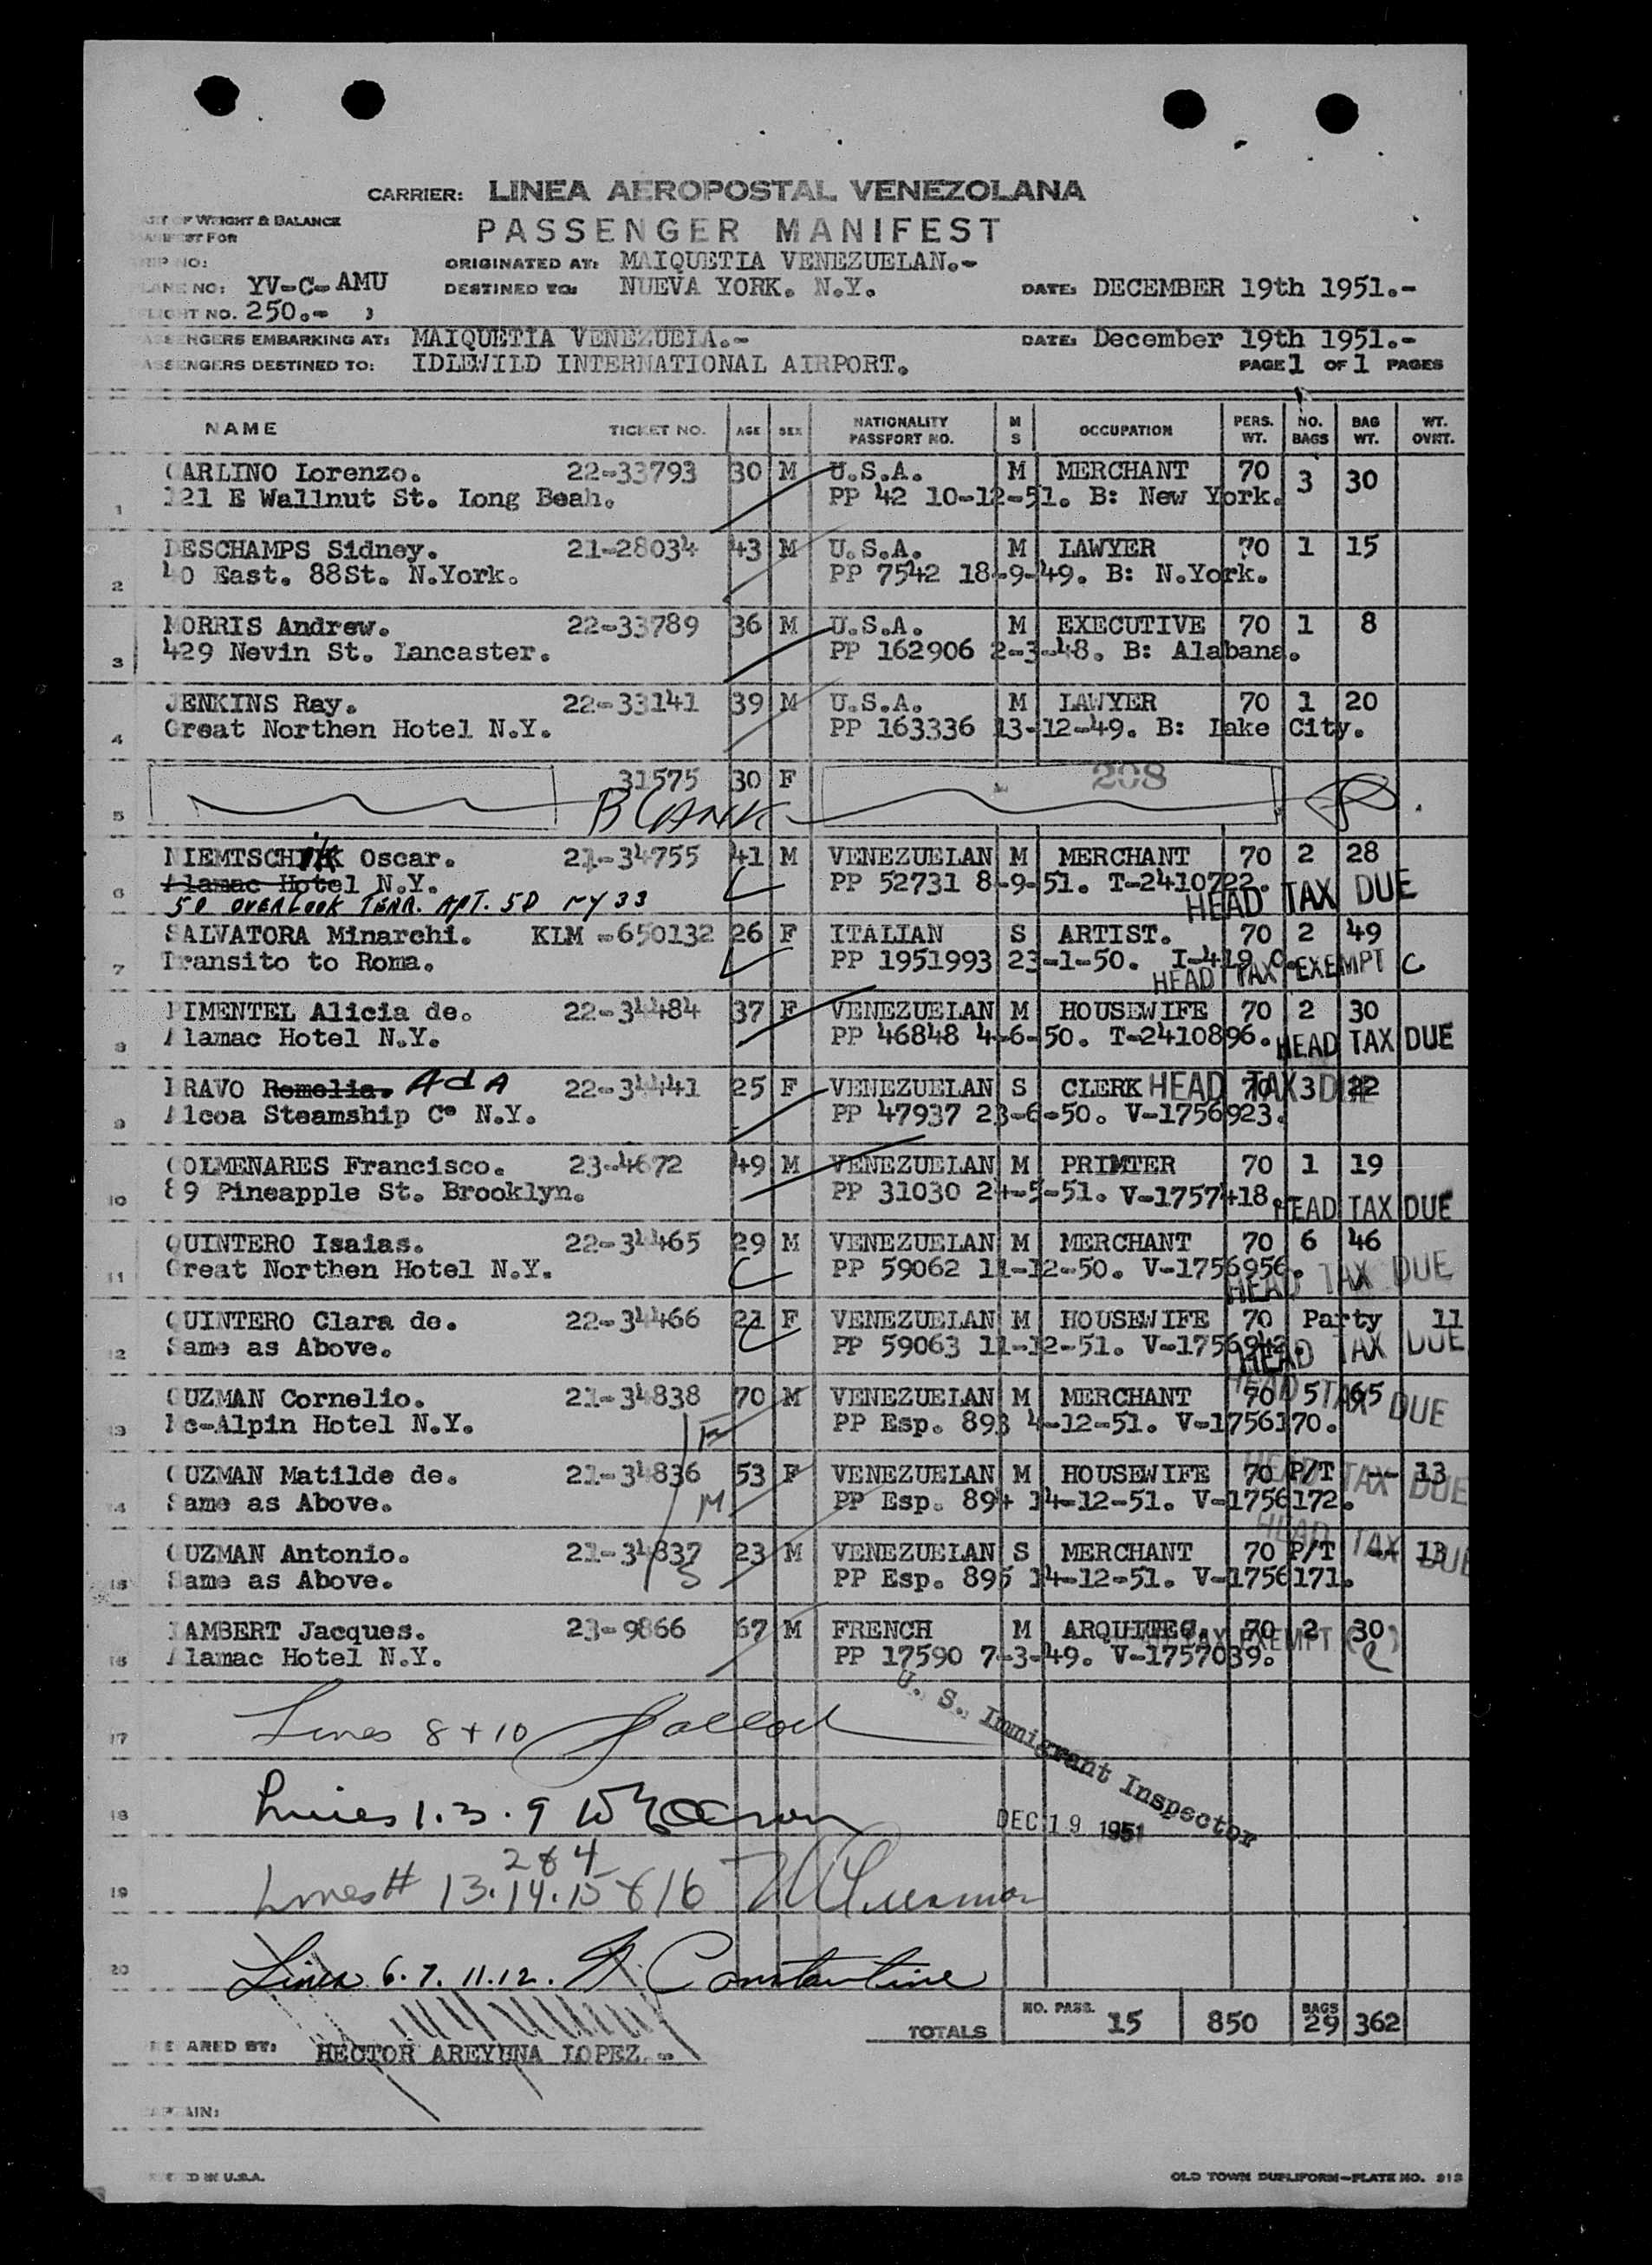 CARRIER: LINEA AEROPOSTAL VENEZOLANA
OF WEIGHT & BALANCE
FOR
PASSENGER MANIFEST
NO:
ORIGINATED AT: MAIQUETIA VENEZUELAN.-
NO: YV-C-AMU
DESTINED TO: NUEVA YORK. N.Y. DATE: DECEMBER 19th 1951.-
NO. 250.-
EMBARKING AT: MAIQUETIA VENEZUELA.- DATE: December 19th 1951.-
DESTINED TO: IDLEWILD INTERNATIONAL AIRPORT. PAGE 1 OF 1 PAGES
NAME TICKET NO. AGE SEX NATIONALITY PASSPORT NO. M S OCCUPATION PERS. WT. NO. BAGS BAG WT. WT. OVRT.
CARLINO Lorenzo. 22-33793 30 M U.S.A. M MERCHANT 70 3 30
1 121 E Wallnut St. Long Beah. PP 42 10-12-51. B: New York.
DESCHAMPS Sidney. 21-28034 43 M U.S.A. M LAWYER 70 1 15
2 40 East. 88St. N.York. PP 7542 18-9-49. B: N.York.
MORRIS Andrew. 22-33789 36 M U.S.A. M EXECUTIVE 70 1 8
3 429 Nevin St. Lancaster. PP 162906 2-3-48. B: Alabana.
JENKINS Ray. 22-33141 39 M U.S.A. M LAWYER 70 1 20
4 Great Northen Hotel N.Y. PP 163336 13-12-49. B: Lake City.
31575 30 F 208
5 BLANK
NIEMTSCHIK Oscar. 21-34755 41 M VENEZUELAN M MERCHANT 70 2 28
Alamac Hotel N.Y. PP 52731 8-9-51. T-2410722.
6 50 OVERLOOK TERR. APT. 5D NY 33 HEAD TAX DUE
SALVATORA Minarchi. KLM -650132 26 F ITALIAN S ARTIST. 70 2 49
7 Transito to Roma. PP 1951993 23-1-50. I-419 C.
HEAD TAX EXEMPT C
PIMENTEL Alicia de. 22-34484 37 F VENEZUELAN M HOUSEWIFE 70 2 30
8 Alamac Hotel N.Y. PP 46848 4-6-50. T-2410896. HEAD TAX DUE
BRAVO Romelia. AdA 22-34441 25 F VENEZUELAN S CLERK HEAD TAX DUE 70 3 22
9 Alcoa Steamship Co N.Y. PP 47937 23-6-50. V-1756923.
COLMENARES Francisco. 23-4672 49 M VENEZUELAN M PRIMTER 70 1 19
10 89 Pineapple St. Brooklyn. PP 31030 24-5-51. V-1757418. HEAD TAX DUE
QUINTERO Isaias. 22-34465 29 M VENEZUELAN M MERCHANT 70 6 46
11 Great Northen Hotel N.Y. PP 59062 11-12-50. V-1756956. HEAD TAX DUE
QUINTERO Clara de. 22-34466 21 F VENEZUELAN M HOUSEWIFE 70 Party 11
12 Same as Above. PP 59063 11-12-51. V-1756942. HEAD TAX DUE
GUZMAN Cornelio. 21-34838 70 M VENEZUELAN M MERCHANT 70 5 65 HEAD TAX DUE
13 Mc-Alpin Hotel N.Y. F PP Esp. 893 4-12-51. V-1756170.
GUZMAN Matilde de. 21-34836 53 F VENEZUELAN M HOUSEWIFE 70 P/T -- 13 HEAD TAX DUE
14 Same as Above. M PP Esp. 894 14-12-51. V-1756172.
GUZMAN Antonio. 21-34837 23 M VENEZUELAN S MERCHANT 70 P/T -- 13 HEAD TAX DUE
15 Same as Above. S PP Esp. 895 14-12-51. V-1756171.
LAMBERT Jacques. 23-9866 67 M FRENCH M ARQUITEC. 70 2 30 TAX EXEMPT (C)
16 Alamac Hotel N.Y. PP 17590 7-3-49. V-1757039.
17 Lines 8 + 10
U. S. Immigrant Inspector
18 Lines 1. 3. 9 DEC 19 1951
2 & 4
19 Lines # 13. 14. 15 & 16
20 Lines 6. 7. 11. 12. Constantine
TOTALS NO. PASS. 15 850 BAGS 29 362
ARED BY: HECTOR AREYUNA LOPEZ.-
AIN:
IN U.S.A. OLD TOWN DUPLIFORM-PLATE NO. 313